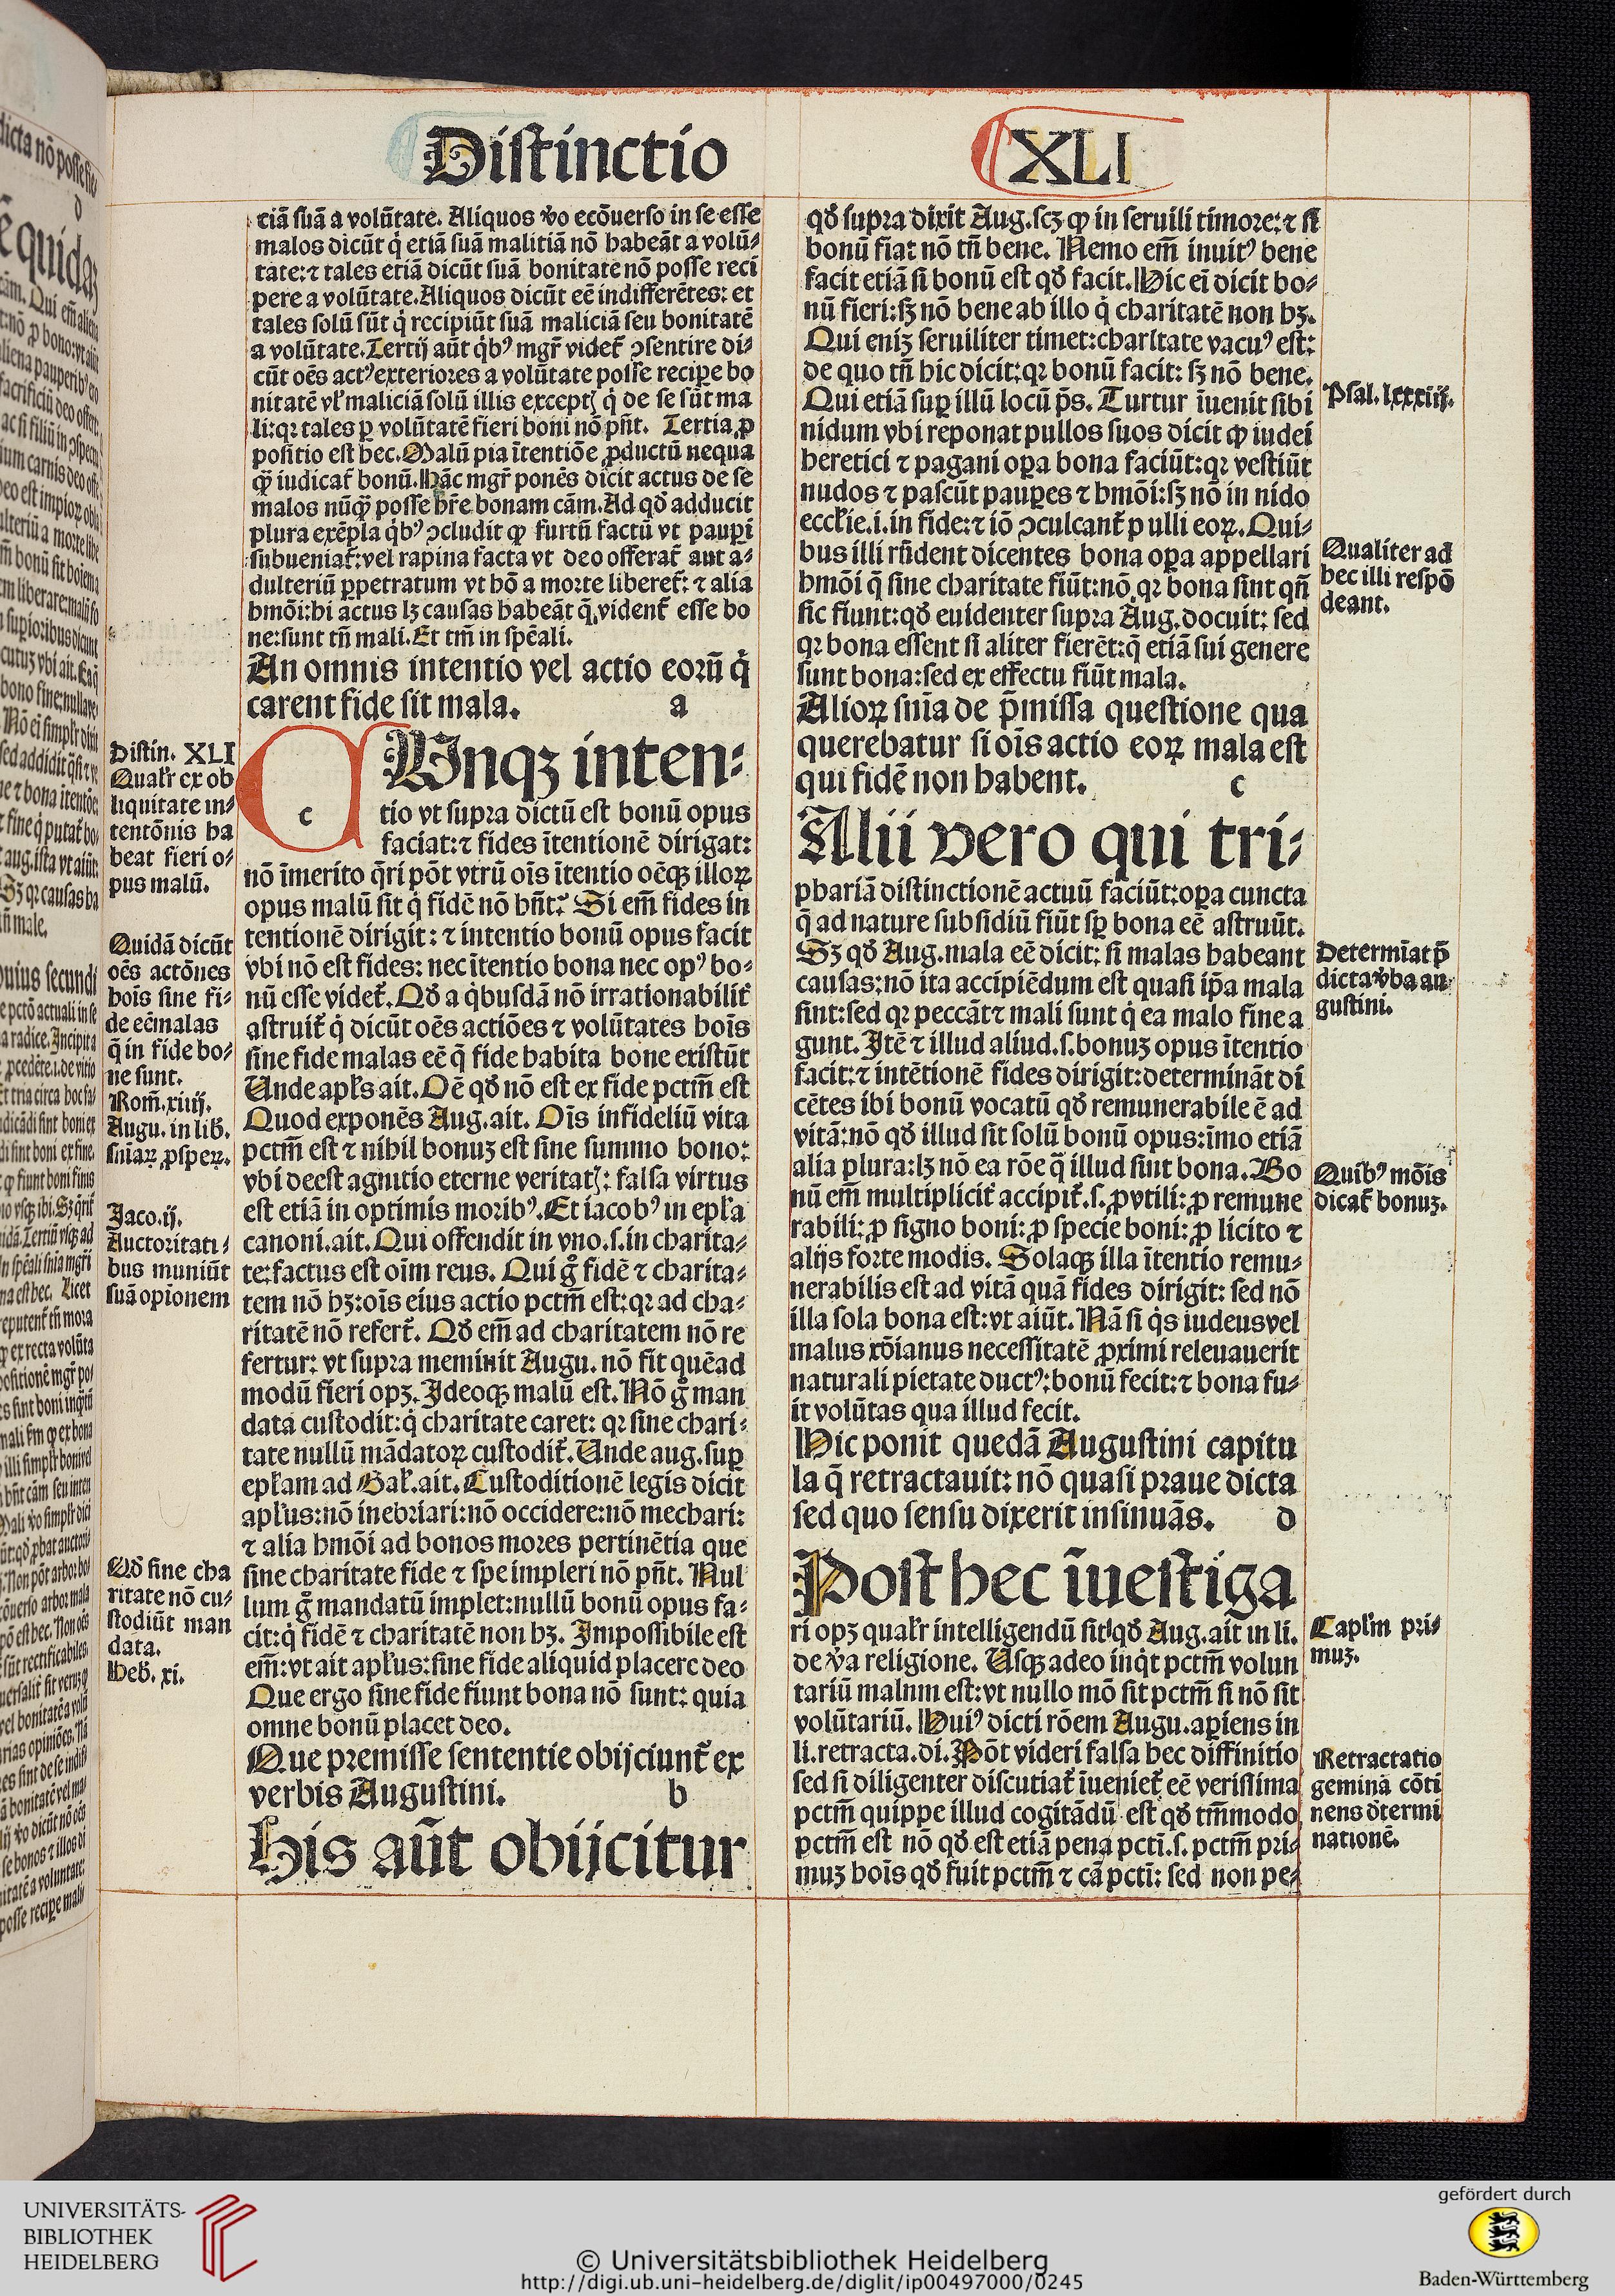 Distinctio
XLI
ciā suā a volūtate. Aliquos v̄o ecōuerso in se esse
malos dicūt q̇ etiā suā malitiā nō habeāt a volū-
tate: ⁊ tales etiā dicūt suā bonitatē nō posse reci
pere a volūtate. Aliquos dicūt eē indifferētes: et
tales solū sūt q̇ recipiūt suā maliciā seu bonitatē
a volūtate. Tertij aūt q̇bꝰ mgr̄ videt̄ ↄsentire di-
cūt oēs actꝰ exteriores a volūtate posse reciꝑe bo
nitatē vl̄ maliciā solū illis exceptꝭ q̇ de se sūt ma
li: qꝛ tales ꝑ volūtatē fieri boni nō pn̄t. Tertia ꝓ
positio est hec. Malū pia ītentiōe ꝓductū nequa
ꝙ̄ iudicat̄ bonū. Hāc mgr̄ ponēs dicit actus de se
malos nūꝙ̄ posse hr̄e bonam cām. Ad qd̄ adducit
plura exēpla q̇bꝰ ↄcludit ꝙ furtū factū vt pauꝑi
subueniat̄: vel rapina facta vt deo offerat̄ aut a-
dulteriū ꝑpetratum vt hō a morte liberet̄: ⁊ alia
hmōi: hi actus lꝫ causas habeāt q̄ vident̄ esse bo
ne: sunt tn̄ mali. Et tm̄ in spēali.
An omnis intentio vel actio eorū q̇
carent fide sit mala. a
Distin. XLI
Qual̄r ex ob
liquitate in-
tentōnis ha
beat fieri o-
pus malū.
C c
Unqꝫ inten-
tio vt supra dictū est bonū opus
faciat: ⁊ fides ītentionē dirigat:
nō īmerito q̄ri pōt vtrū oīs ītentio oēqꝫ illoꝝ
opus malū sit q̇ fidē nō hn̄t. Si em̄ fides in
tentionē dirigit: ⁊ intentio bonū opus facit
vbi nō est fides: nec ītentio bona nec opꝰ bo-
nū esse videt̄. Qd̄ a q̇busdā nō irrationabilit̄
astruit̄ q̇ dicūt oēs actiōes ⁊ volūtates hoīs
sine fide malas eē q̄ fide habita bone existūt
Unde apl̄s ait. Oē qd̄ nō est ex fide pctm̄ est
Quod exponēs Aug. ait. Oīs infideliū vita
pctm̄ est ⁊ nihil bonuꝫ est sine summo bono:
vbi deest agnitio eterne veritatꝭ: falsa virtus
est etiā in optimis moribꝰ. Et iacobꝰ in epl̄a
canoni. ait. Qui offendit in vno. s. in charita-
te: factus est oīm reus. Qui g̊ fidē ⁊ charita-
tem nō hꝫ: oīs eius actio pctm̄ est: qꝛ ad cha-
ritatē nō refert̄. Qd̄ em̄ ad charitatem nō re
fertur: vt supra meminit Augu. nō fit quēad
modū fieri opꝫ. Ideoqꝫ malū est. Nō g̊ man
data custodit: q̇ charitate caret: qꝛ sine chari-
tate nullū mādatoꝝ custodit̄. Unde aug. suꝑ
epl̄am ad Gal̄. ait. Custoditionē legis dicit
apl̄us: nō inebriari: nō occidere: nō mechari:
⁊ alia hmōi ad bonos mores pertinētia que
sine charitate fide ⁊ spe impleri nō pn̄t. Nul
lum g̊ mandatū implet: nullū bonū opus fa-
cit: q̇ fidē ⁊ charitatē non hꝫ. Impossibile est
em̄: vt ait apl̄us: sine fide aliquid placere deo
Que ergo sine fide fiunt bona nō sunt: quia
omne bonū placet deo.
Que premisse sententie obijciunt̄ ex
verbis Augustini. b
His aūt obijcitur
Quidā dicūt
oēs actōnes
hoīs sine fi-
de eē malas
q̄ in fide bo-
ne sunt.
Rom̄. xiiij.
Augu. in lib̄.
sniaꝝ ꝓsꝑeꝝ.
Jaco. ij.
Auctoritati-
bus muniūt
suā opionem
Qd̄ sine cha
ritate nō cu-
stodiūt man
data.
Heb̄. xi.
qd̄ supra dixit Aug. scꝫ ꝙ in seruili timore: ⁊ si
bonū fiat nō tn̄ bene. Nemo em̄ inuitꝰ bene
facit etiā si bonū est qd̄ facit. Hic ei dicit bo-
nū fieri: sꝫ nō bene ab illo q̇ charitatē non hꝫ.
Qui eniꝫ seruiliter timet: charitate vacuꝰ est:
de quo tn̄ hic dicit: qꝛ bonū facit: sꝫ nō bene.
Qui etiā suꝑ illū locū p̄s. Turtur īuenit sibi
nidum vbi reponat pullos suos dicit ꝙ iudei
heretici ⁊ pagani oꝑa bona faciūt: qꝛ vestiūt
nudos ⁊ pascūt pauꝑes ⁊ hmōi: sꝫ nō in nido
eccl̄ie. i. in fide: ⁊ iō ↄculcant̄ p ulli eoꝝ. Qui-
bus illi rn̄dent dicentes bona oꝑa appellari
hmōi q̄ sine charitate fiūt: nō qꝛ bona sint qn̄
sic fiunt: qd̄ euidenter supra Aug. docuit: sed
qꝛ bona essent si aliter fierēt: q̄ etiā sui genere
sunt bona: sed ex effectu fiūt mala.
Alioꝝ snīa de p̄missa questione qua
querebatur si oīs actio eoꝝ mala est
qui fidē non habent. c
Alii vero qui tri-
phariā distinctionē actuū faciūt: oꝑa cuncta
q̄ ad nature subsidiū fiūt sꝑ bona eē astruūt.
Sꝫ qd̄ Aug. mala eē dicit: si malas habeant
causas: nō ita accipiēdum est quasi ip̄a mala
sint: sed qꝛ peccāt ⁊ mali sunt q̇ ea malo fine a
gunt. Itē ⁊ illud aliud. s. bonuꝫ opus ītentio
facit: ⁊ intētionē fides dirigit: determināt di
cētes ibi bonū vocatū qd̄ remunerabile ē ad
vitā: nō qd̄ illud sit solū bonū opus: īmo etiā
alia plura: lꝫ nō ea rōe q̄ illud sint bona. Bo
nū em̄ multiplicit̄ accipit̄. s. ꝓ vtili: ꝓ remune
rabili: ꝓ signo boni: ꝓ specie boni: ꝓ licito ⁊
alijs forte modis. Solaqꝫ illa ītentio remu-
nerabilis est ad vitā quā fides dirigit: sed nō
illa sola bona est: vt aiūt. Nā si q̇s iudeus vel
malus xōianus necessitatē ꝓximi releuauerit
naturali pietate ductꝰ: bonū fecit: ⁊ bona fu-
it volūtas qua illud fecit.
Hic ponit quedā Augustini capitu
la q̄ retractauit: nō quasi praue dicta
sed quo sensu dixerit insinuās. d
Post hec īuestiga
ri opꝫ qual̄r intelligendū sit qd̄ Aug. ait in li.
de v̄a religione. Usqꝫ adeo inq̇t pctm̄ volun
tariū malum est: vt nullo mō sit pctm̄ si nō sit
volūtariū. Huiꝰ dicti rōem Augu. aꝑiens in
li. retracta. di. Pōt videri falsa hec diffinitio
sed si diligenter discutiat̄ īueniet̄ eē verissima
pctm̄ quippe illud cogitādū est qd̄ tm̄modo
pctm̄ est nō qd̄ est etiā pena pcti. s. pctm̄ pri-
muꝫ hoīs qd̄ fuit pctm̄ ⁊ cā pcti: sed non pe-
Psal. lxxxiij.
Qualiter ad
hec illi respō
deant.
Determīat p̄
dicta v̄ba au
gustini.
Quibꝰ mōis
dicat̄ bonuꝫ.
Capl̄m pri-
muꝫ.
Retractatio
geminā cōti
nens d̄termi
nationē.
UNIVERSITÄTS-
BIBLIOTHEK
HEIDELBERG
© Universitätsbibliothek Heidelberg
http://digi.ub.uni-heidelberg.de/diglit/ip00497000/0245
gefördert durch
Baden-Württemberg